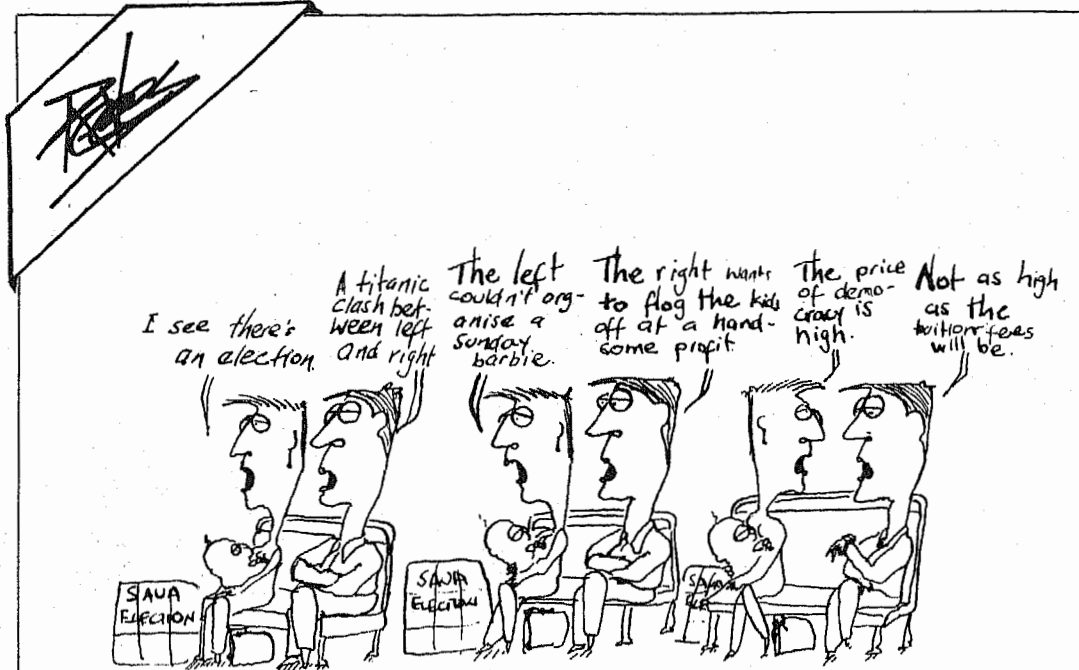 I see there's
an election.
A titanic
clash bet-
ween left
and right
The left
couldn't org-
anise a
sunday
barbie.
The right wants
to flog the kids
off at a hand-
some profit
The price
of demo-
cracy is
high.
Not as high
as the
tuition fees
will be.
SAUA
ELECTION
SAUA
ELECTION
SAUA
ELE